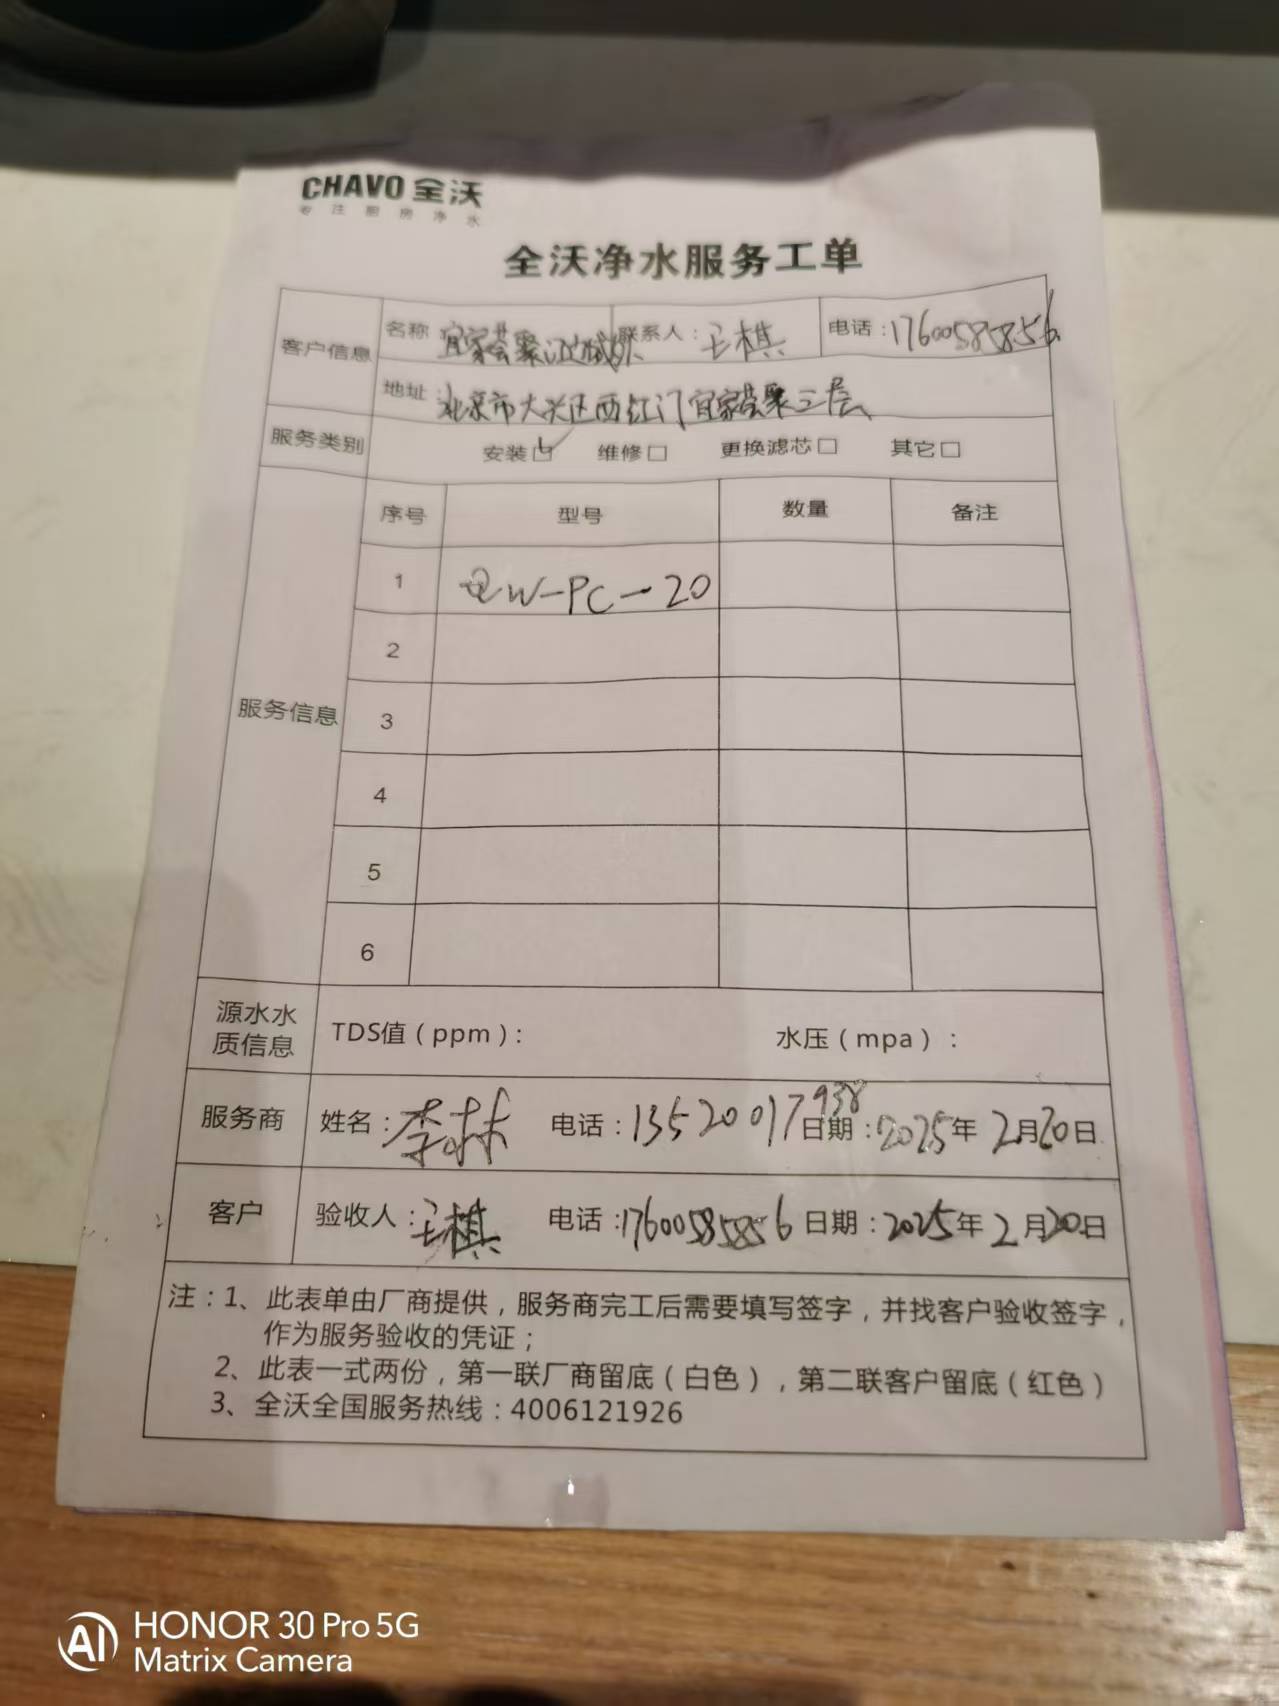 CHAVO 全沃
专注厨房净水
全沃净水服务工单
客户信息 名称 宜家荟聚 联系人：王棋 电话：17600585856
地址 北京市大兴区西红门宜家荟聚三层
服务类别 安装☑ 维修□ 更换滤芯□ 其它□
服务信息 序号 型号 数量 备注
1 QW-PC-20
2
3
4
5
6
源水水质信息 TDS值（ppm）： 水压（mpa）：
服务商 姓名：李林 电话：13520017938 日期：2025年2月20日
客户 验收人：王棋 电话：17600585856 日期：2025年2月20日
注：1、此表单由厂商提供，服务商完工后需要填写签字，并找客户验收签字，
作为服务验收的凭证；
2、此表一式两份，第一联厂商留底（白色），第二联客户留底（红色）
3、全沃全国服务热线：4006121926
AI HONOR 30 Pro 5G
Matrix Camera